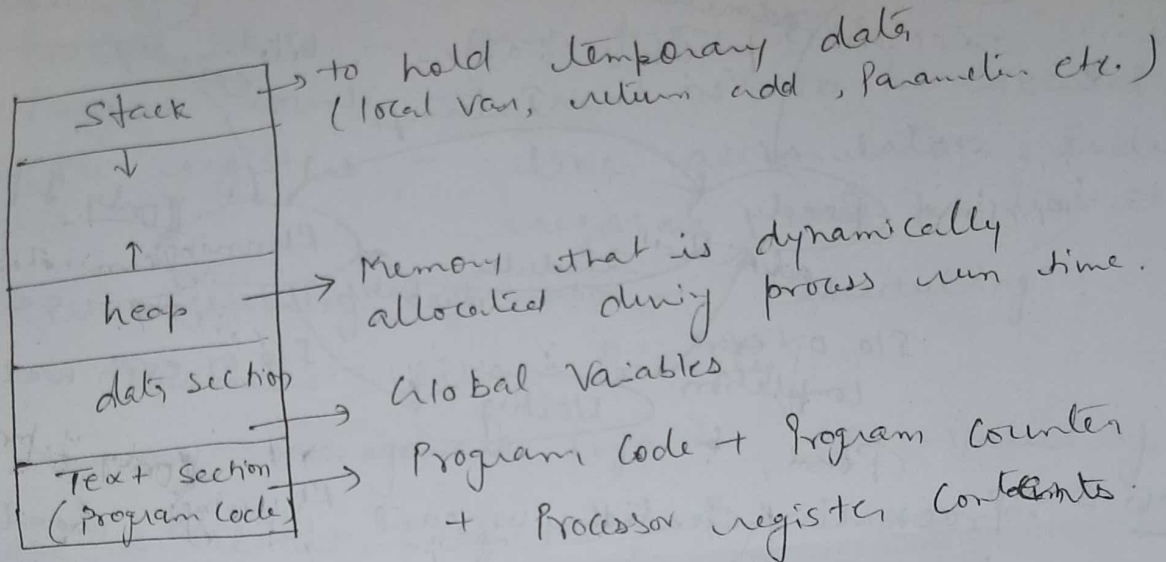 Stack
→ to hold temporary data
(local var, return add, Parameter etc.)
↓
↑
heap
→ Memory that is dynamically
allocated during process run time.
data section
→ Global Variables
Text section
(Program Code)
→ Program Code + Program Counter
+ Processor register contents.